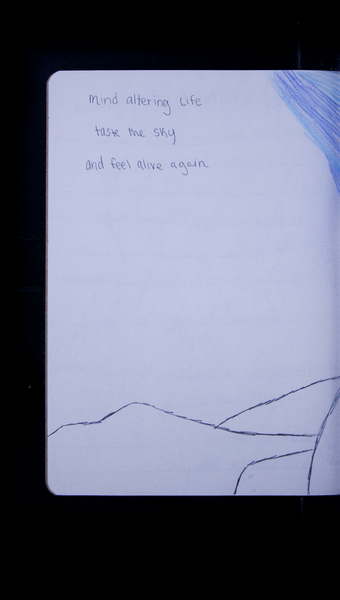 mind altering life
taste the sky
and feel alive again